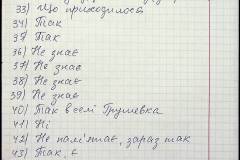 33) Що приходилось
34) Так
35) Так
36) Не знає
37) Не знає
38) Не знає
39) Не знає
40) Так в селі Грушевка
41) Ні
42) Не пам'ятає, зараз так
43) Так, є